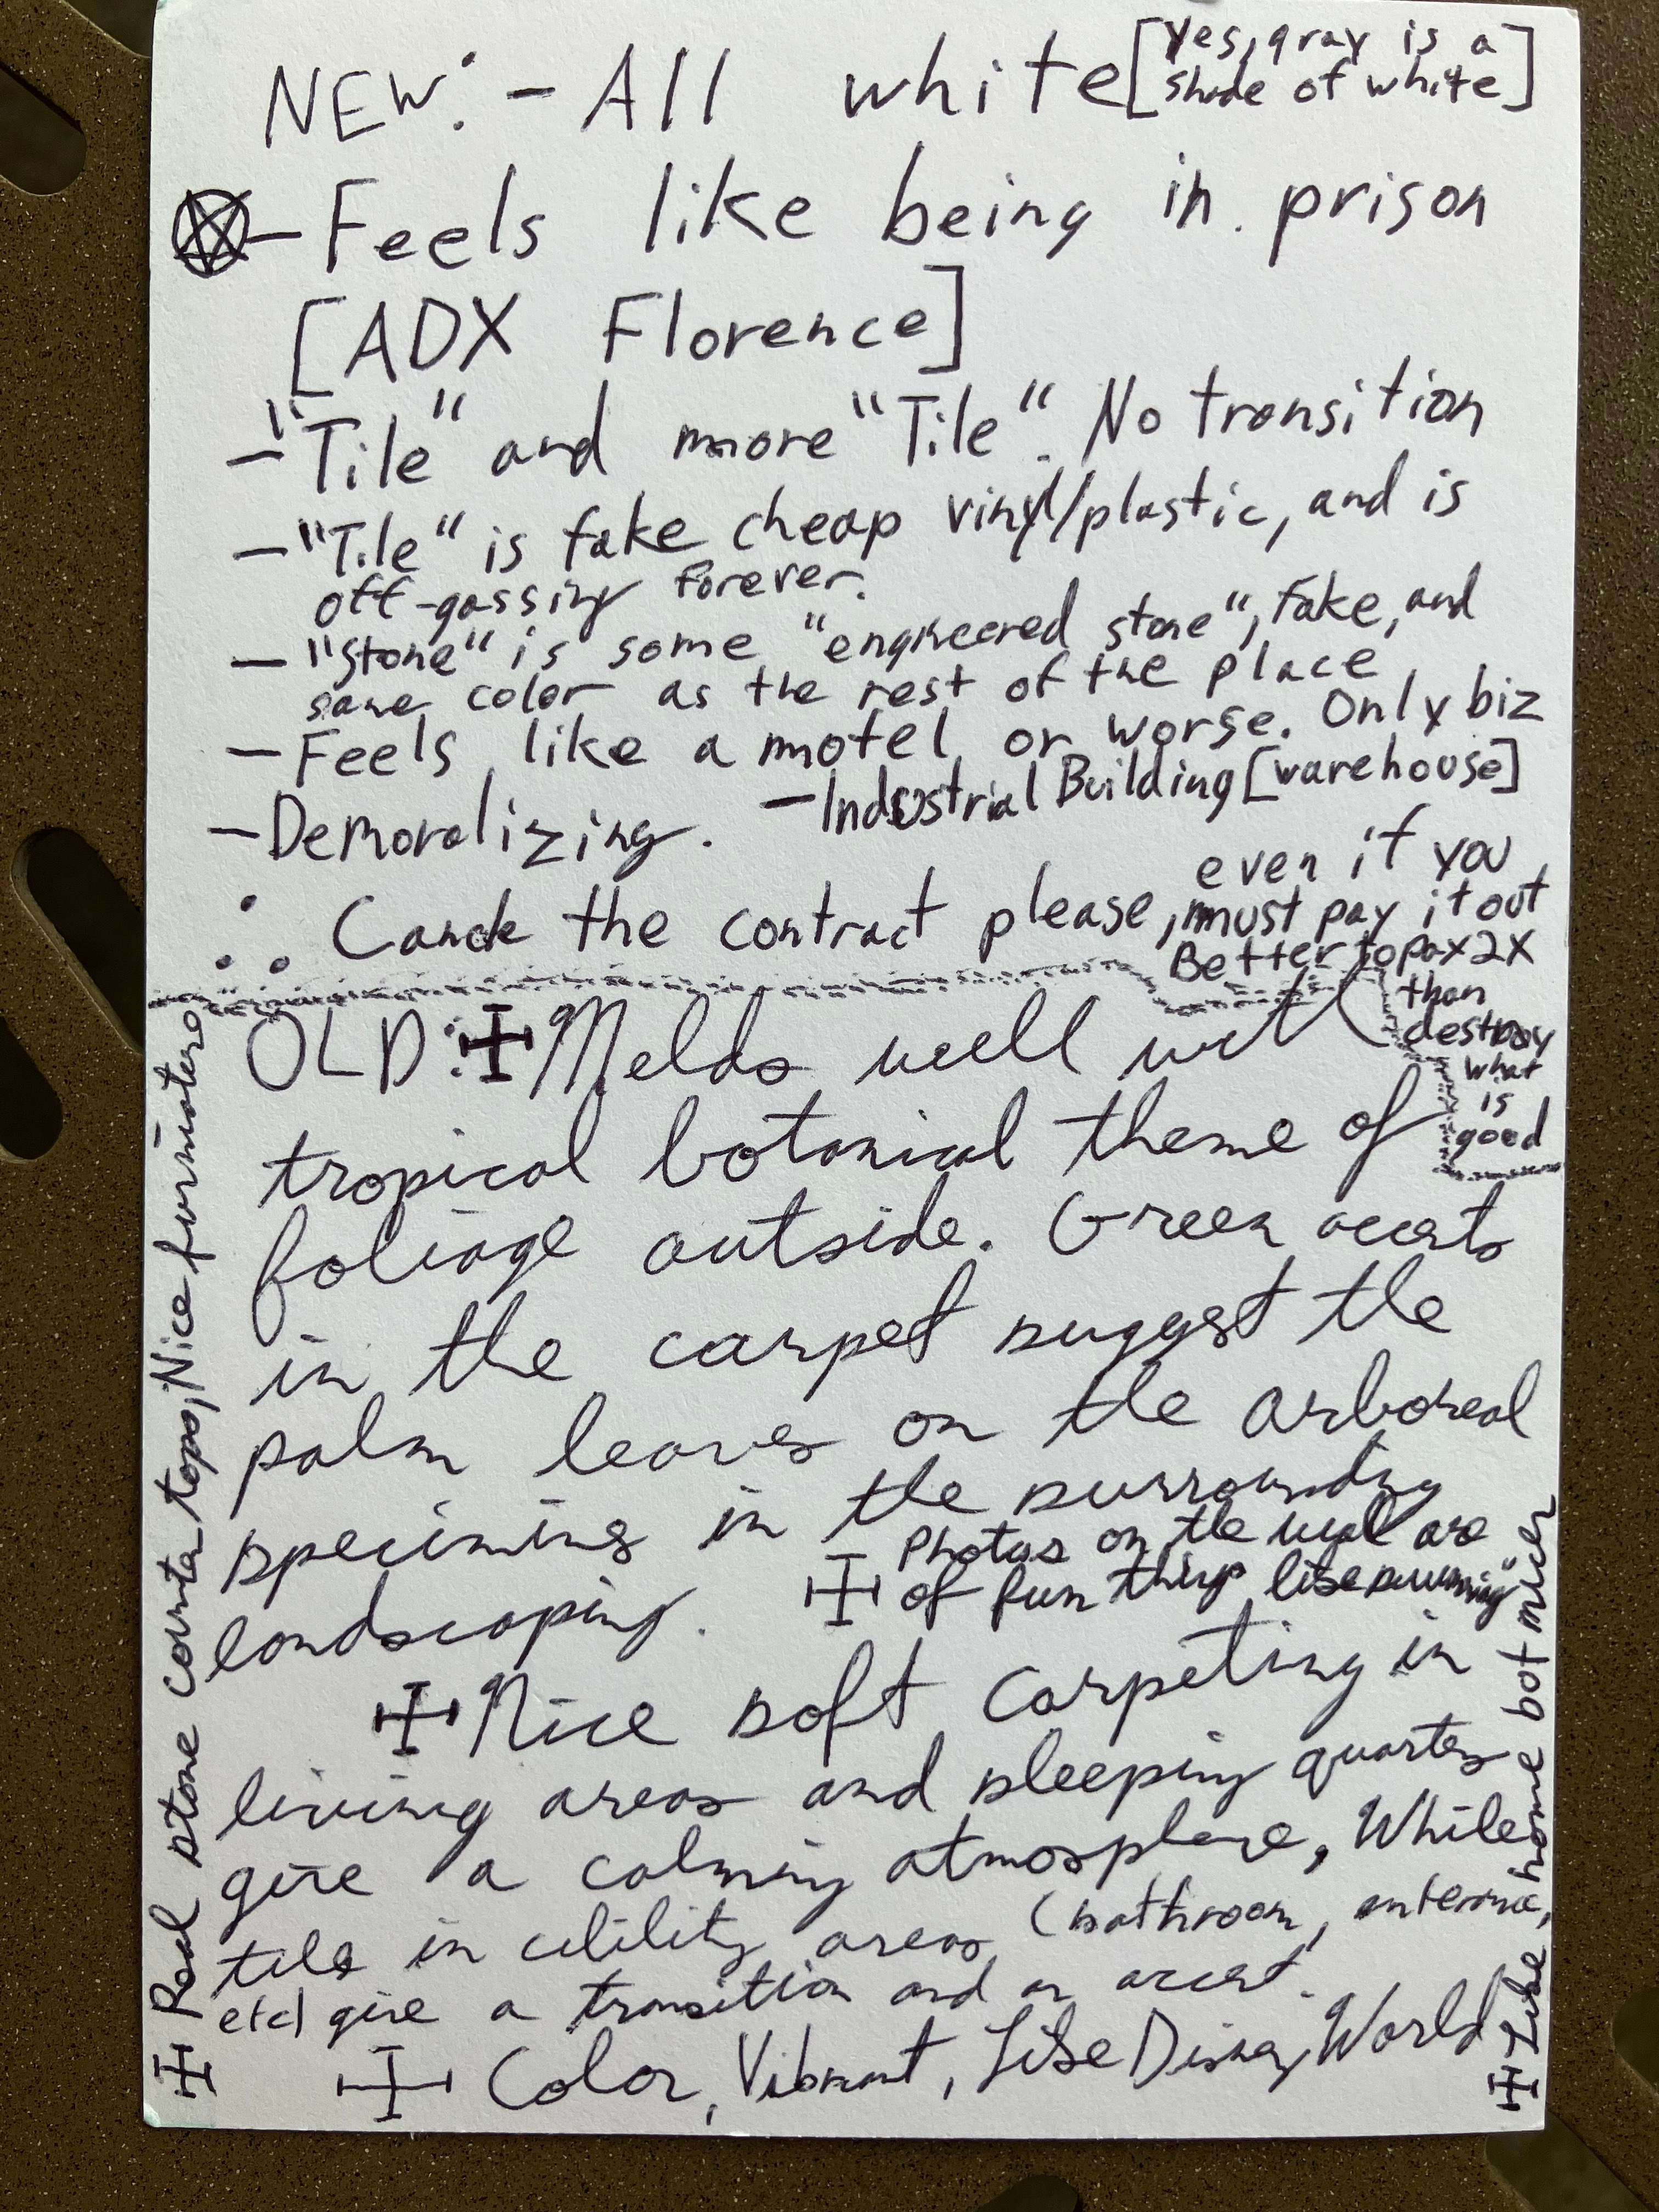 NEW: - All white [Yes, gray is a
shade of white]
- Feels like being in prison
[ADX Florence]
- "Tile" and more "Tile". No transition
- "Tile" is fake cheap vinyl/plastic, and is
off-gassing forever.
- "Stone" is some "engineered stone", Fake, and
same color as the rest of the place
- Feels like a motel or worse. Only biz
- Demoralizing. - Industrial Building [warehouse]
∴ the contract please, even if you
must pay it out
Better to pay 2X
than
destroy
what
is
good
OLD: ✠ Melds well with
tropical botanical theme of
foliage outside. Green accents
in the carpet suggest the
palm leaves on the arboreal
specimins in the surrounding
landscaping. ✠ Photos on the wall are
of fun things like swimming
✠ Nice soft carpeting in
living areas and sleeping quarters
give a calming atmosphere, While
tile in utility areas (bathroom, enterance,
etc) give a transition and an accent.
✠ Color, Vibrant, Like Disney World
✠ Real stone counta tops, Nice furniature
✠ Like home bot nicer